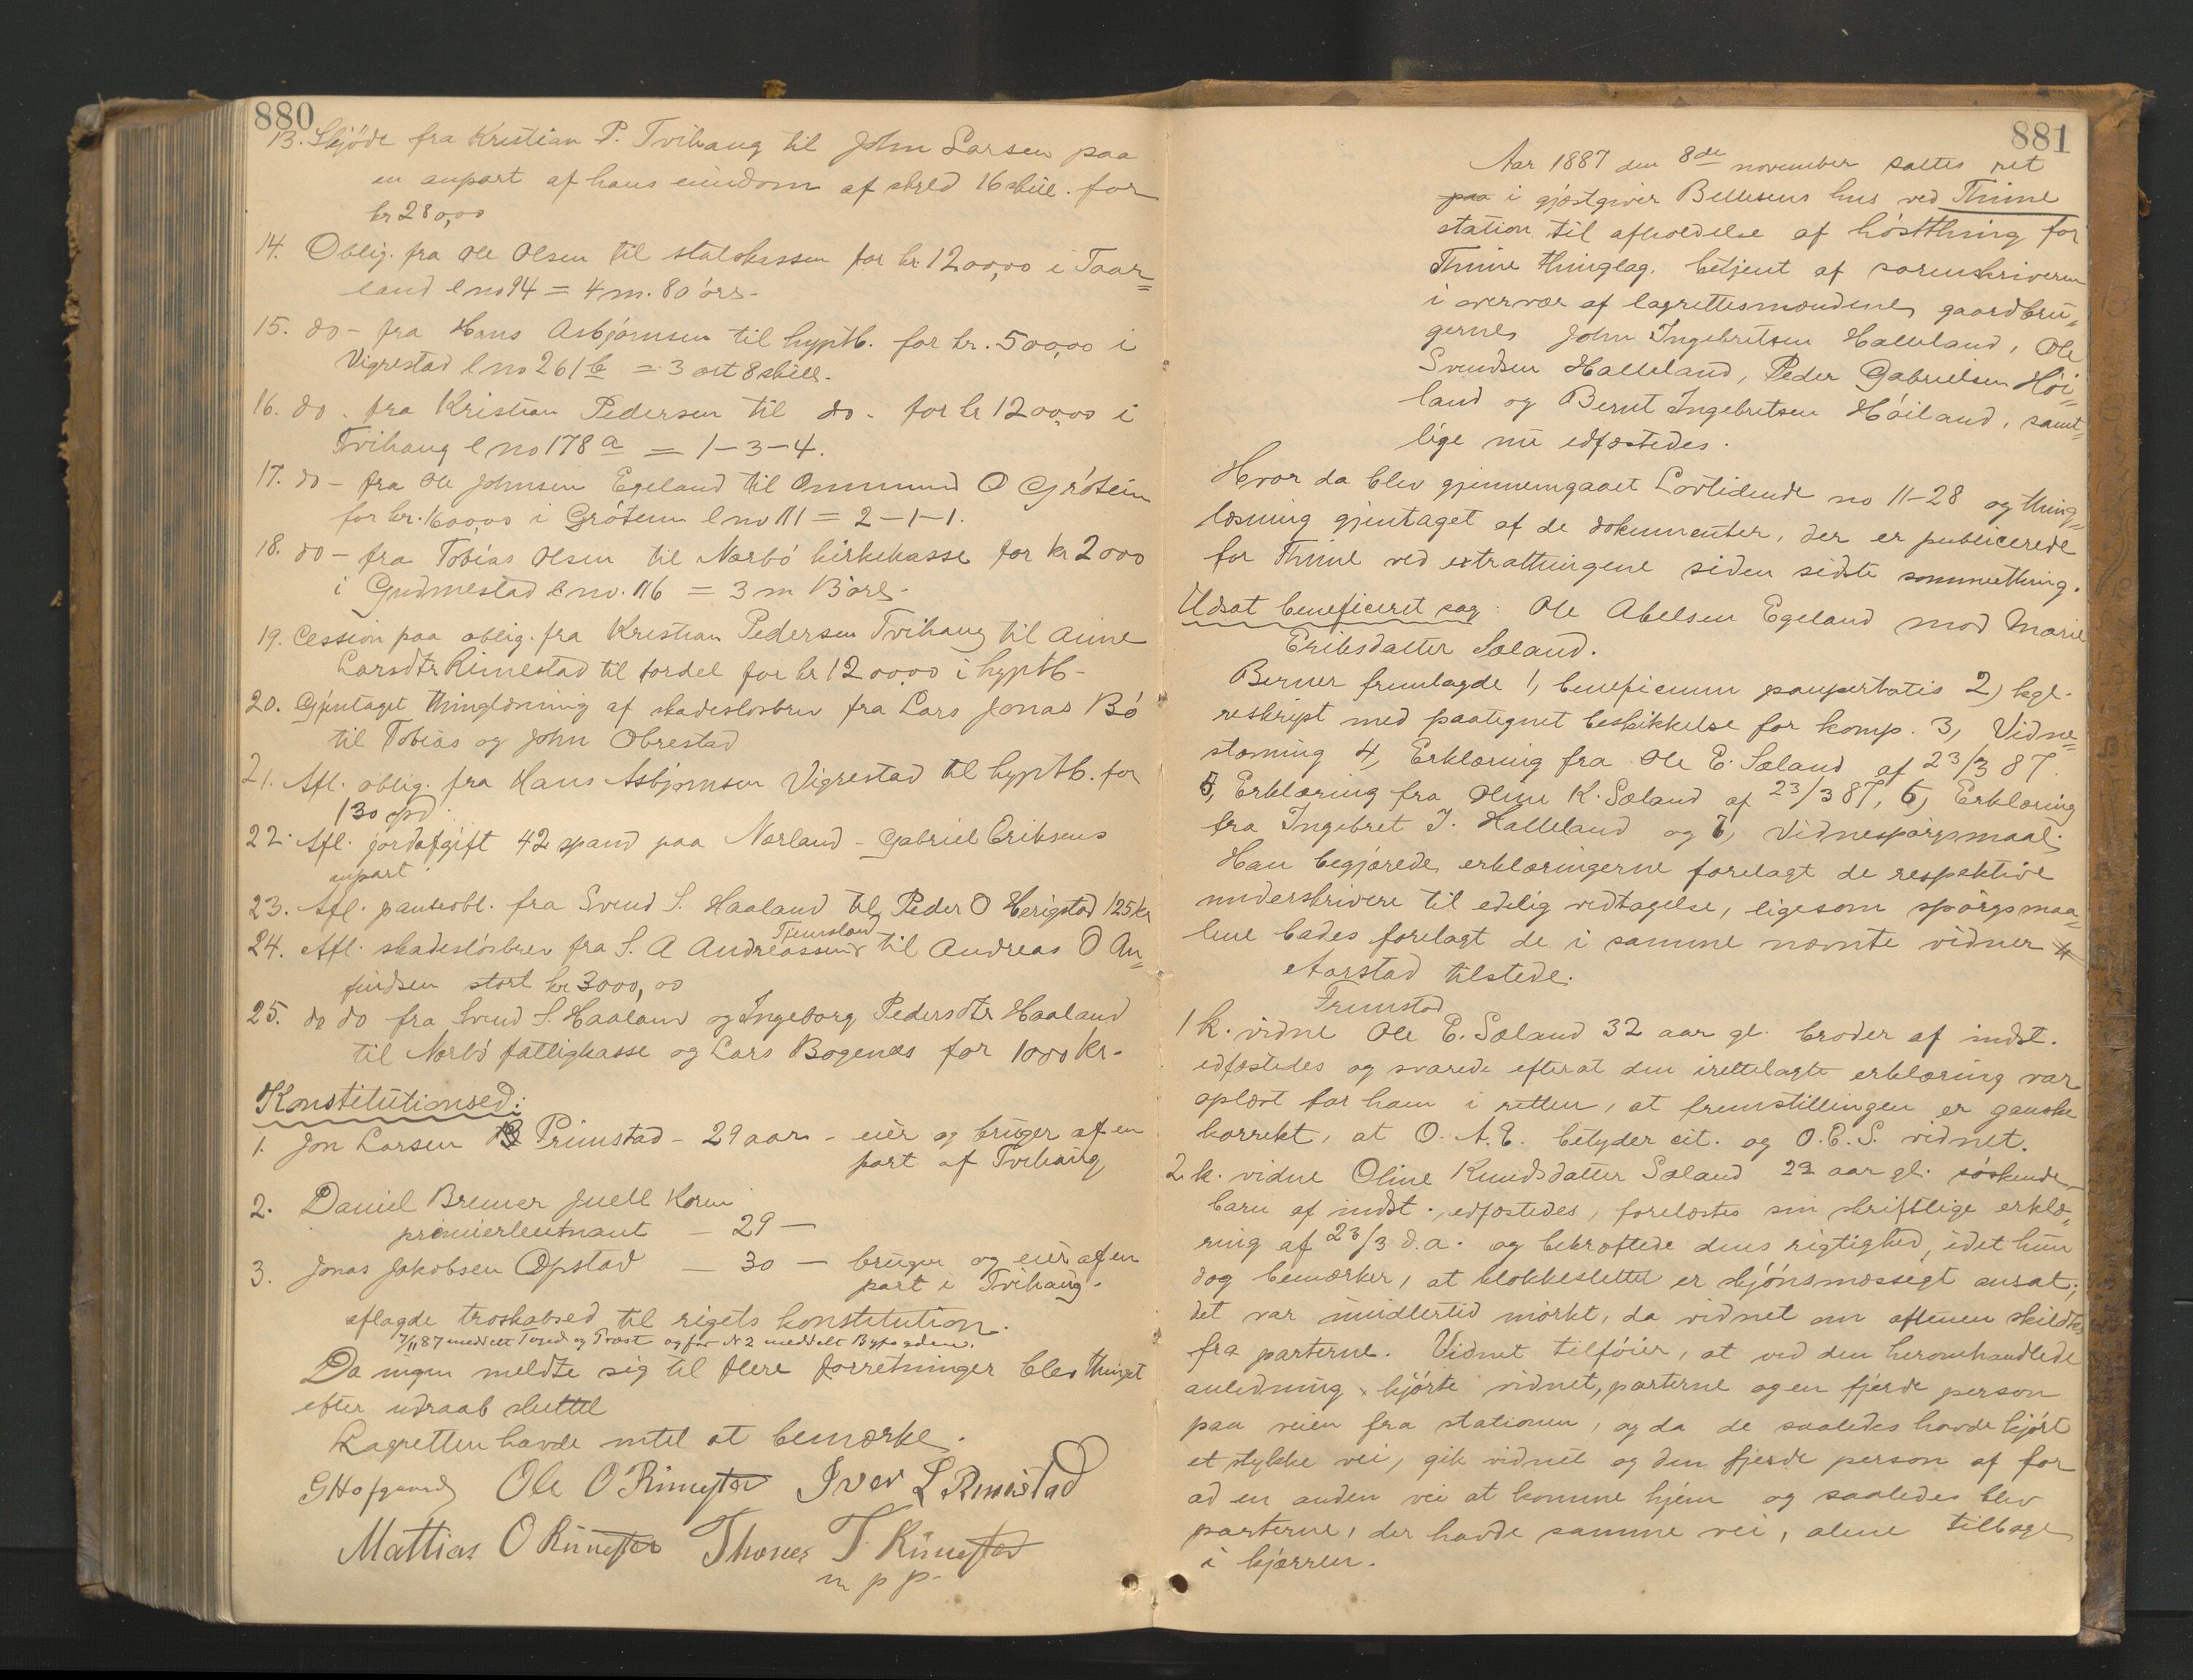 880
13. Skjöde fra Kristian P. Tvihaug til John Larsen paa
en anpart af hans eiendom af skyld 16 skill. for
kr 280,00
14. Oblig. fra Ole Olsen til statskassen for kr. 1200,00 i Taar=
land l no 94 = 4 m. 80 örs.
15. do - fra Hans Asbjørnsen til hyptb. for kr. 500,00 i
Vigrestad l no 261 b = 3 ort 8 skill.
16. do - fra Kristian Pedersen til do - for kr 1200,00 i
Tvihaug l no 178 a = 1-3-4.
17. do - fra Ole Johnsen Egeland til Ommund O Gröteim
for kr. 1600,00 i Gröteim l no 111 = 2-1-1.
18. do - fra Tobias Olsen til Nærbö kirkekasse for kr 2000
i Gudmestad l no. 116 = 3 m 13 örs.
19. Cession paa oblig. fra Kristian Pedersen Tvihaug til Anne
Larsdtr Rimestad til fordel for kr 1200,00 i hyptb-
20. Gjentaget thinglæsning af skadeslösbrev fra Lars Jonas Bö
til Tobias og John Obrestad
21. Afl. oblig. fra Hans Asbjørnsen Vigrestad til hyptb. for
130 spd
22. Afl. jordafgift 42 spand paa Nærland - Gabriel Eriksens
anpart
23. Afl. panteobl. fra Svend S. Haaland til Peder O Herigstad 125 kr
24. Afl. skadeslösbrev fra S. A Andreassen Tjemsland til Andreas O An=
findsen stort kr 3000,00
25. do do fra Svend S. Haaland og Ingeborg Pedersdtr Haaland
til Nærbö fattigkasse og Lars Bogenæs for 1000 kr.
Konstitutionsed:
1. Jon Larsen Primstad - 29 aar - eier og bruger af en
part af Tvihaug
2. Daniel Bremer Juell Koren
premierleutnant - 29 -
3. Jonas Jakobsen Opstad - 30 - bruger og eier af en
part i Tvihaug.
aflagde troskabsed til rigets konstitution.
7/11 87 meddelt Foged og Præst og for N 2 meddelt Byfogden.
Da ingen meldte sig til flere forretninger blev thinget
efter udraab sluttet
Lagretten havde intet at bemærke.
GHofgaard Ole O Rimestad Iver L Rimistad
Mattias O Rimestad Thones T Rimestad
m p p.
881
Aar 1887 den 8de november sattes ret
paa i gjæstgiver Bellesens hus ved Thime
station til afholdelse af høstthing for
Thime thinglag, betjent af sorenskriveren
i overvær af lagrettesmændene, gaardbru=
gerne, John Ingebretsen Halleland, Ole
Svendsen Halleland, Peder Gabrielsen Höi=
land og Bernt Ingebretsen Höiland, samt=
lige nu edfæstedes.
Hvor da blev gjennemgaaet Lovtidende no 11-28 og thing=
læsning gjentaget af de dokumenter, der er publicerede
for Thime ved extrathingene siden sidste sommerthing.
Udsat beneficeret sag: Ole Abelsen Egeland mod Marie
Eriksdatter Sæland.
Berner fremlagde 1, beneficium paupertatis 2, kgl.
reskript med paategnet beskikkelse for komp. 3, Vidne=
stævning 4, Erklæring fra Ole E. Sæland af 23/3 87.
5, Erklæring fra Oline K. Sæland af 23/3 87, 6, Erklæring
fra Ingebret J. Halleland og 7, Vidnespörgsmaal.
Han begjærede erklæringerne forelagt de respektive
underskrivere til edelig vedtagelse, ligesom spörgsmaa=
lene bades forelagt de i samme nævnte vidner
Aarstad tilstede.
Fremstod
1 k. vidne Ole E. Sæland 32 aar gl. broder af indst.
edfæstedes og svarede efterat den irettelagte erklæring var
oplæst for ham i retten, at fremstillingen er ganske
korrekt, at O. A. E. betyder cit. og O. E. S. vidnet.
2 k. vidne Oline Knudsdatter Sæland 23 aar gl. söskende=
barn af indst., edfæstedes, forelæstes sin skriftlige erklæ=
ring af 23/3 d.a. og bekræftede dens rigtighed, idet hun
dog bemærker, at klokkeslettet er skjönsmæssigt ansat;
det var imidlertid mörkt, da vidnet om aftenen skildtes
fra parterne. Vidnet tilföier, at ved den heromhandlede
anledning kjörte vidnet, parterne og en fjerde person
paa veien fra stationen, og da de saaledes havde kjört
et stykke vei, gik vidnet og den fjerde person af for
ad en anden vei at komme hjem og saaledes blev
parterne, der havde samme vei, alene tilbage
i kjærren.